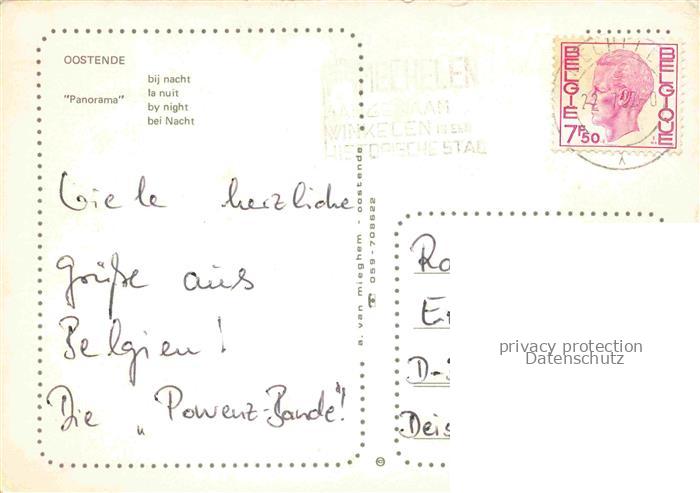 OOSTENDE
"Panorama"
bij nacht
la nuit
by night
bei Nacht
MECHELEN
AANGENAAM
WINKELEN IN EEN
HISTORISCHE STAD
BELGIË
BELGIQUE
7F50
Viele herzliche
Grüße aus
Belgien!
Die „Powenz-Bande"!
a. van mieghem - oostende
☎ 059-708622
Ro
D-
Deis
privacy protection
Datenschutz